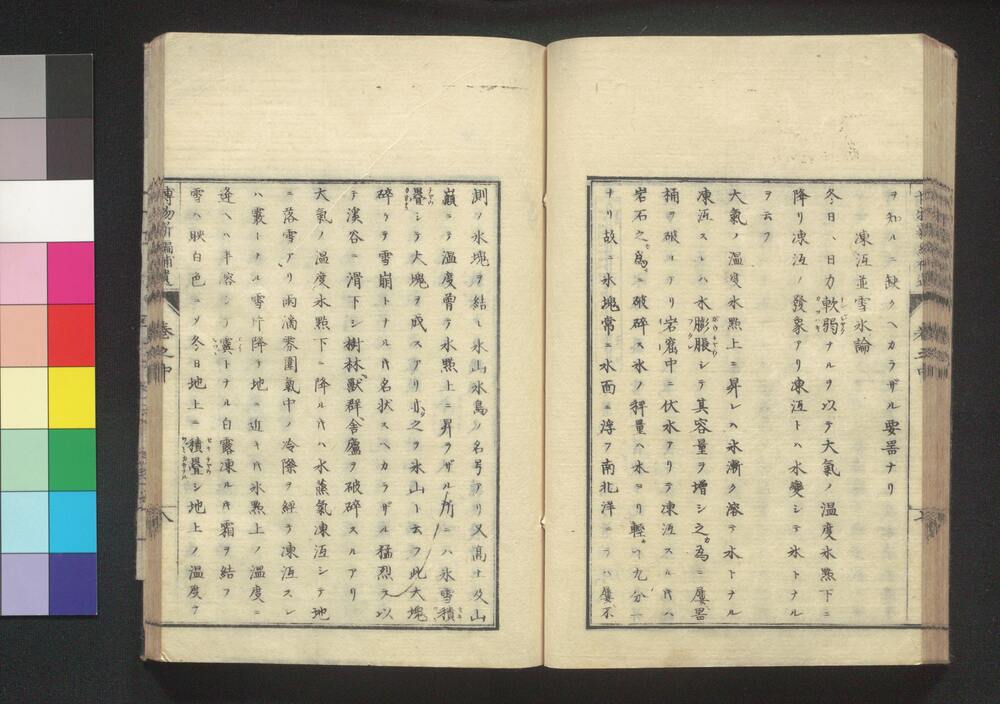 ヲ知ルニ缺クヘカラザル要器ナリ
凍沍並雪氷論
冬日ハ日力軟弱ナルヲ以テ大氣ノ温度氷點下ニ
降リ凍沍ノ發象アリ凍沍トハ水變シテ氷トナル
ヲ云フ
大氣ノ温度氷點上ニ昇レハ氷漸ク溶テ水トナル
凍沍スレハ水膨脹シテ其容量ヲ増シ之カ為ニ屢器
桶ヲ破ルコアリ岩窟中ニ伏水アリテ凍沍スル片ハ
岩石之カ為ニ破碎ス氷ノ秤量ハ水ヨリ輕キコ九分一
ナリ故ニ氷塊常ニ水面ニ浮フ南北洋ニテハ屢不
測ノ氷塊ヲ結ヒ氷山氷島ノ名号アリ又高キ山
巓ニテ温度曾テ氷點上ニ昇ラザル所ニハ氷雪積
疊シテ大塊ヲ成スアリ亦之ヲ氷山ト云フ此大塊
碎ケテ雪崩トナル片名状スヘカラザル猛烈ヲ以
テ溪谷ニ滑下シ樹林獸群舎廬ヲ破碎スルアリ
大氣ノ温度氷點下ニ降ル片ハ水蒸氣凍沍シテ地
ニ落雪アリ雨滴雰圍氣中ノ冷際ヲ經テ凍沍スレ
ハ霰トナル雪片降テ地ニ近キ片氷點上ノ温度ニ
逢ヘハ半容シテ霙トナル白露凍ル片霜ヲ結フ
雪ハ映白色ニ〆冬日地上ニ積疊シ地上ノ温度ヲ
博物新編補遺
卷之中
八